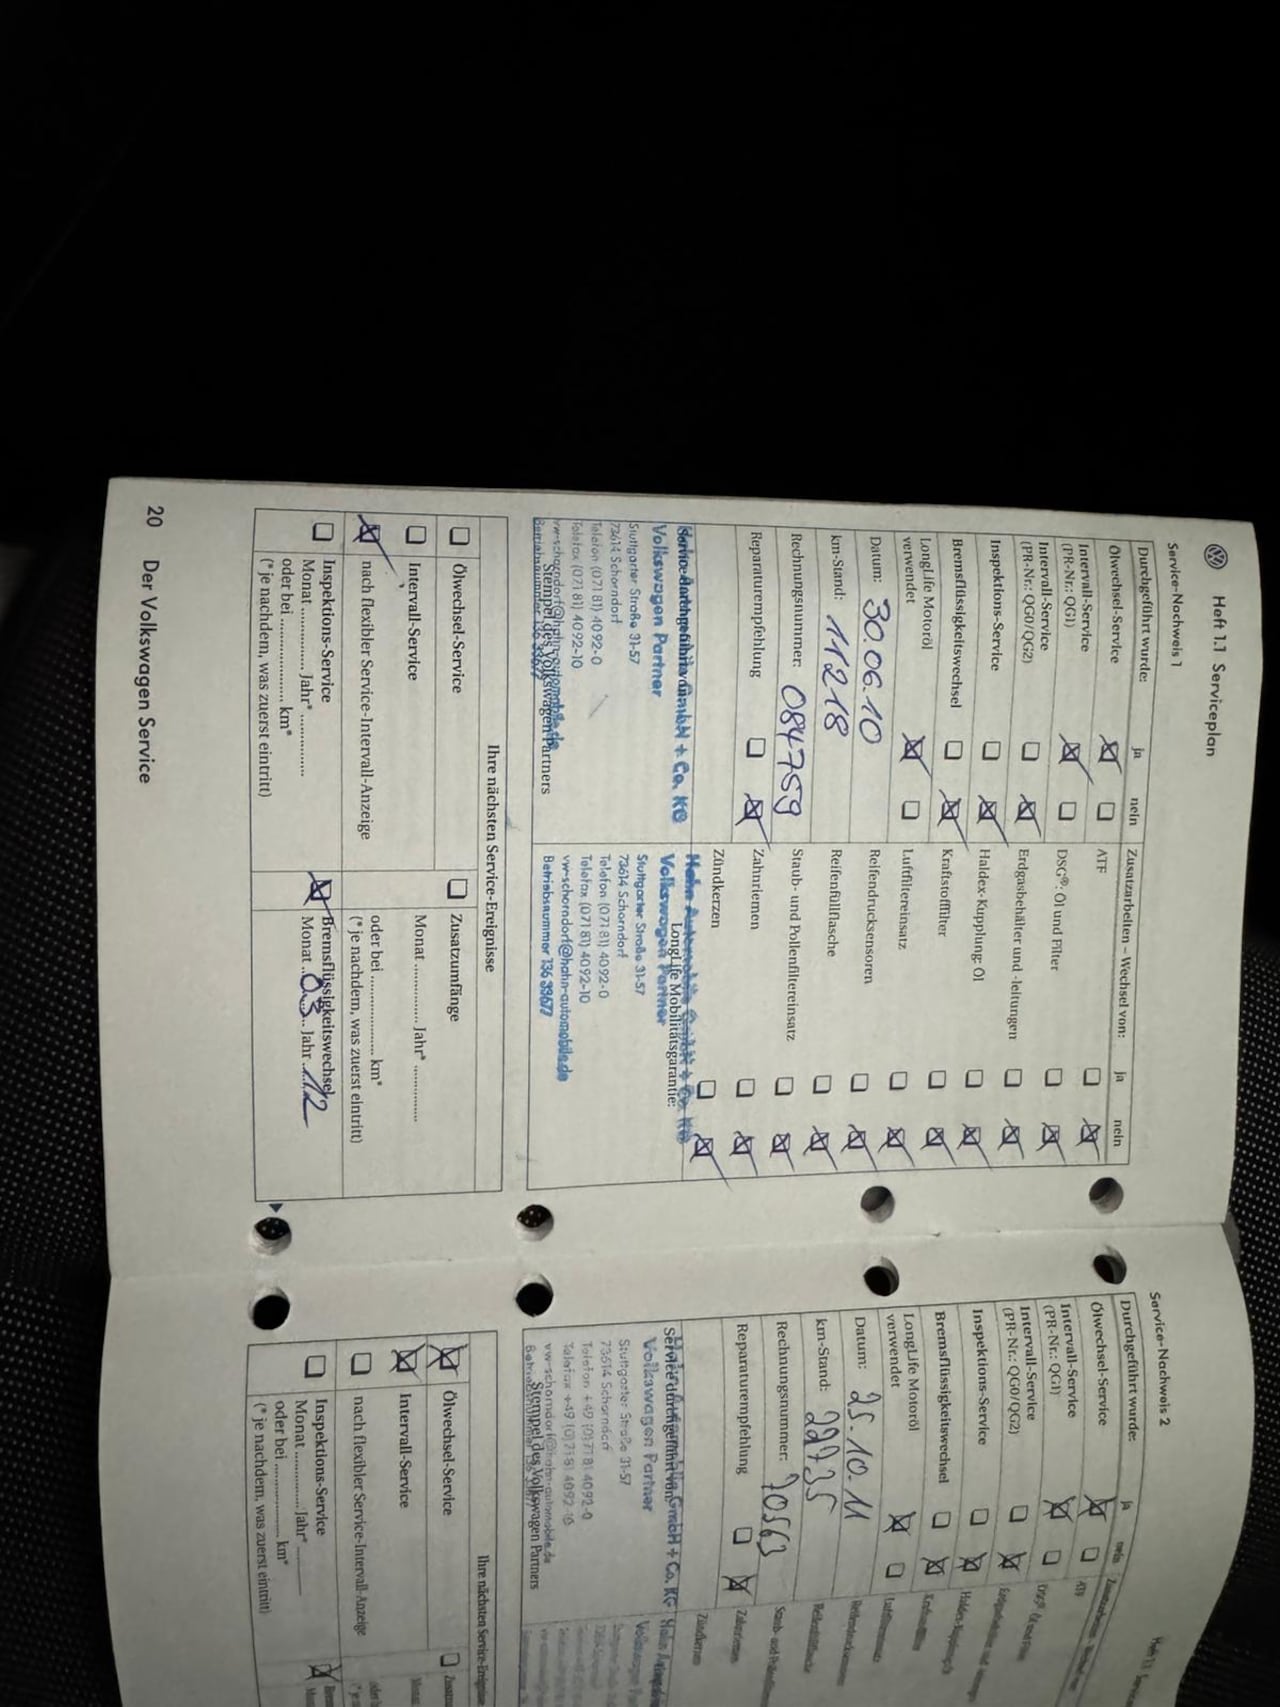 Heft 1.1 Serviceplan
Service-Nachweis 1
Durchgeführt wurde: ja nein
Ölwechsel-Service
Intervall-Service
(PR-Nr.: QG1)
Intervall-Service
(PR-Nr.: QG0/QG2)
Inspektions-Service
Bremsflüssigkeitswechsel
LongLife Motoröl
verwendet
Datum: 30.06.10
km-Stand: 11218
Rechnungsnummer: 084759
Reparaturempfehlung
Zusatzarbeiten – Wechsel von: ja nein
ATF
DSG®: Öl und Filter
Erdgasbehälter und -leitungen
Haldex-Kupplung: Öl
Kraftstofffilter
Luftfiltereinsatz
Reifendrucksensoren
Reifenfüllflasche
Staub- und Pollenfiltereinsatz
Zahnriemen
Zündkerzen
Service durchgeführt von:
Hahn Automobile GmbH + Co. KG
Volkswagen Partner
Stuttgarter Straße 31-57
73614 Schorndorf
Telefon (07181) 4092-0
Telefax (07181) 4092-10
vw-schorndorf@hahn-automobile.de
Betriebsnummer 136 33677
Stempel des Volkswagen Partners
LongLife Mobilitätsgarantie:
Hahn Automobile GmbH + Co. KG
Volkswagen Partner
Stuttgarter Straße 31-57
73614 Schorndorf
Telefon (07181) 4092-0
Telefax (07181) 4092-10
vw-schorndorf@hahn-automobile.de
Betriebsnummer 136 33677
Ihre nächsten Service-Ereignisse
Ölwechsel-Service
Intervall-Service
nach flexibler Service-Intervall-Anzeige
Inspektions-Service
Monat ............... Jahr* ...............
oder bei ............... km*
(* je nachdem, was zuerst eintritt)
Zusatzumfänge
Monat ............... Jahr* ...............
oder bei ............... km*
(* je nachdem, was zuerst eintritt)
Bremsflüssigkeitswechsel
Monat ..03.. Jahr ..12
20 Der Volkswagen Service
Service-Nachweis 2
Durchgeführt wurde: ja nein
Ölwechsel-Service
Intervall-Service
(PR-Nr.: QG1)
Intervall-Service
(PR-Nr.: QG0/QG2)
Inspektions-Service
Bremsflüssigkeitswechsel
LongLife Motoröl
verwendet
Datum: 25.10.11
km-Stand: 22735
Rechnungsnummer: 70563
Reparaturempfehlung
ATF
Luftfiltereinsatz
Reifendrucksensoren
Reifenfüllflasche
Zahnriemen
Zündkerzen
Service durchgeführt von:
Hahn Automobile GmbH + Co. KG
Volkswagen Partner
Stuttgarter Straße 31-57
73614 Schorndorf
Telefon +49 (0)7181 4092-0
Telefax +49 (0)7181 4092-10
vw-schorndorf@hahn-automobile.de
Stempel des Volkswagen Partners
Ihre nächsten Service-Ereignisse
Ölwechsel-Service
Intervall-Service
nach flexibler Service-Intervall-Anzeige
Inspektions-Service
Monat ............... Jahr* ...............
oder bei ............... km*
(* je nachdem, was zuerst eintritt)